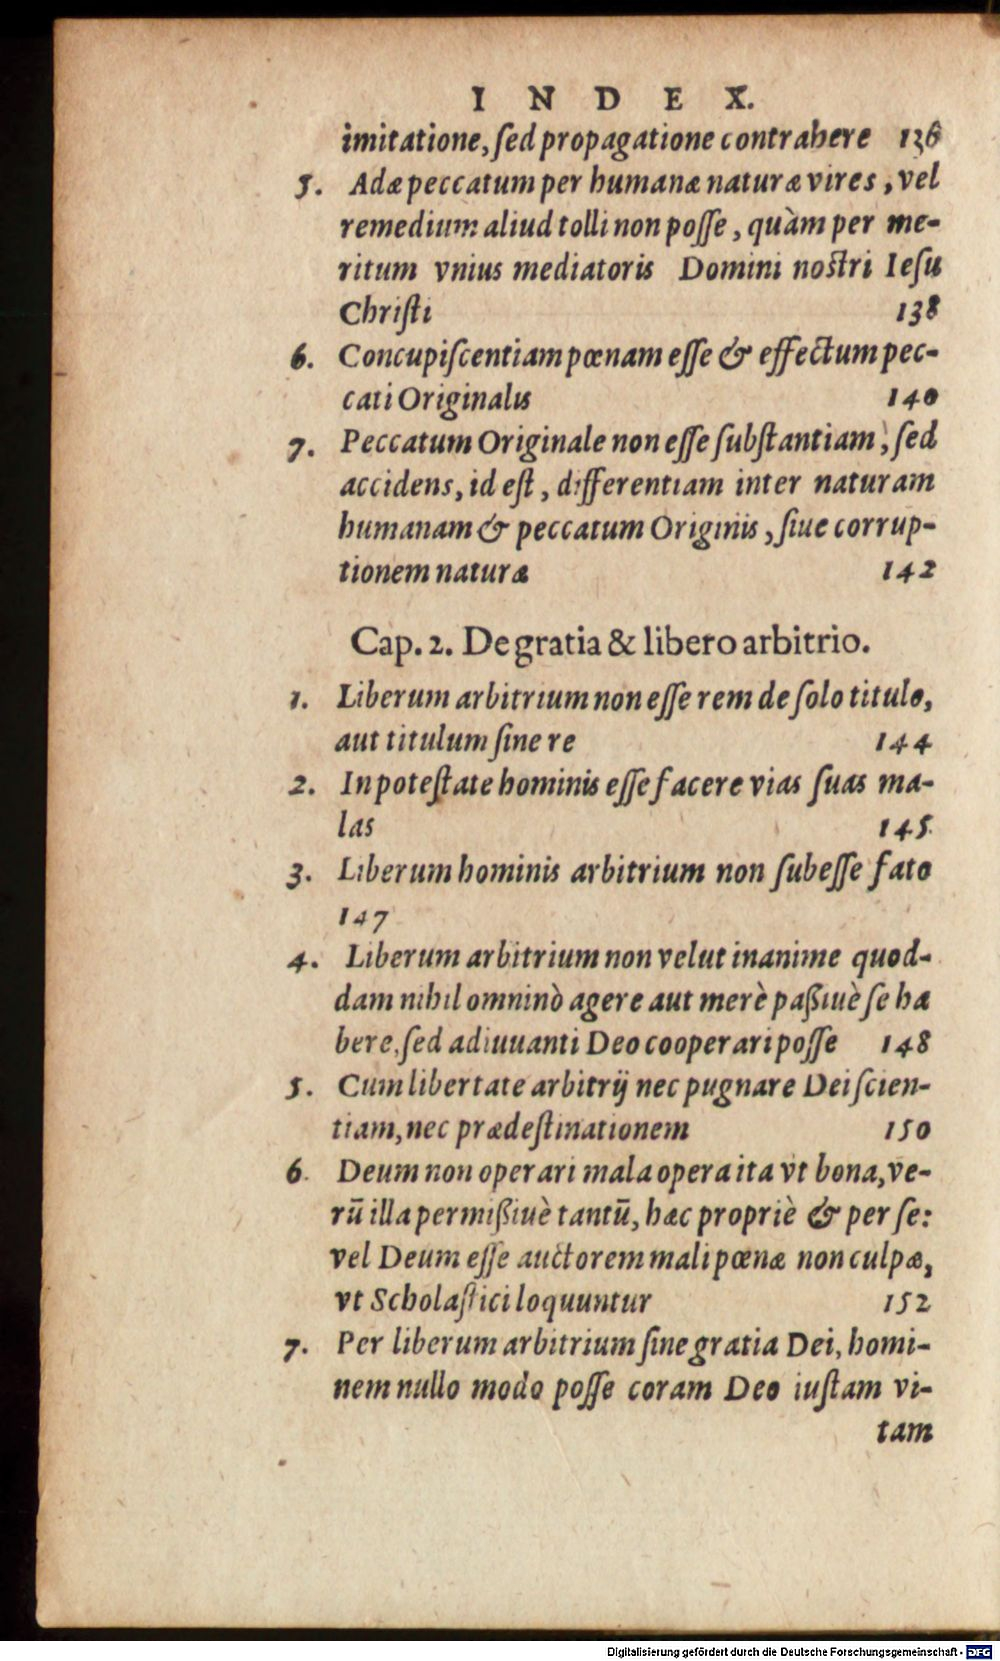 INDEX.
imitatione, ſed propagatione contrahere 136
5. Adæ peccatum per humanæ naturæ vires, vel
remedium aliud tolli non poſſe, quàm per me-
ritum vnius mediatoris Domini noſtri Ieſu
Chriſti 138
6. Concupiſcentiam pœnam eſſe & effectum pec-
cati Originalis 140
7. Peccatum Originale non eſſe ſubſtantiam, ſed
accidens, id eſt, differentiam inter naturam
humanam & peccatum Originis, ſiue corrup-
tionem naturæ 142
Cap. 2. De gratia & libero arbitrio.
1. Liberum arbitrium non eſſe rem de ſolo titulo,
aut titulum ſine re 144
2. In poteſtate hominis eſſe facere vias ſuas ma-
las 145.
3. Liberum hominis arbitrium non ſubeſſe fato
147
4. Liberum arbitrium non velut inanime quod-
dam nihil omninò agere aut merè paßiuè ſe ha
bere, ſed adiuuanti Deo cooperari poſſe 148
5. Cum libertate arbitrij nec pugnare Dei ſcien-
tiam, nec prædeſtinationem 150
6. Deum non operari mala opera ita vt bona, ve-
rū illa permißiuè tantū, hæc propriè & per ſe:
vel Deum eſſe auctorem mali pœnæ non culpæ,
vt Scholaſtici loquuntur 152
7. Per liberum arbitrium ſine gratia Dei, homi-
nem nullo modo poſſe coram Deo iuſtam vi-
tam
Digitalisierung gefördert durch die Deutsche Forschungsgemeinschaft - DFG